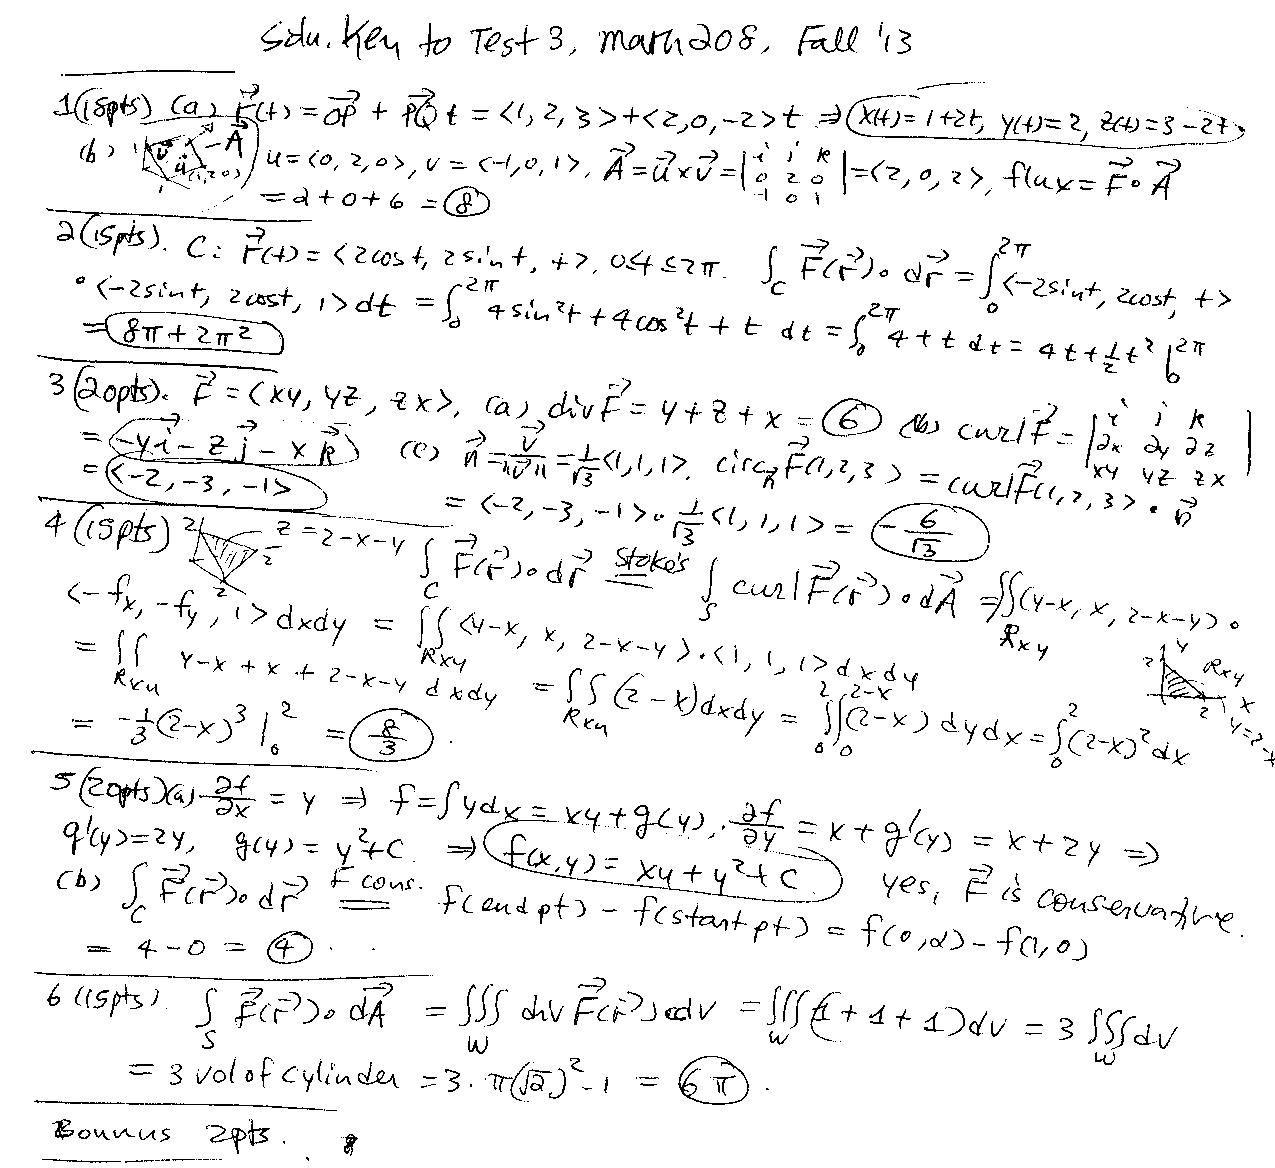 Solu. Key to Test 3, math 208, Fall '13
1 (18pts) (a) r⃗(t) = OP⃗ + PQ⃗ t = <1, 2, 3> + <2, 0, -2> t ⇒ x(t) = 1+2t, y(t) = 2, z(t) = 3-2t
(b) u = <0, 2, 0>, v = <-1, 0, 1>, A⃗ = u⃗ x v⃗ = |i j k; 0 2 0; -1 0 1| = <2, 0, 2>, flux = F⃗ ∘ A⃗
= 2+0+6 = 8
2 (15pts). C: r⃗(t) = <2cost, 2sint, t>, 0≤t≤2π. ∫_C F⃗(r⃗)∘dr⃗ = ∫_0^{2π} <-2sint, 2cost, t>
∘ <-2sint, 2cost, 1> dt = ∫_0^{2π} 4sin²t + 4cos²t + t dt = ∫_0^{2π} 4+t dt = 4t + 1/2 t² |_0^{2π}
= 8π + 2π²
3 (20pts). F⃗ = <xy, yz, zx>, (a) div F⃗ = y+z+x = 6 (b) curl F⃗ = |i j k; ∂x ∂y ∂z; xy yz zx|
= -y i⃗ - z j⃗ - x k⃗ (c) n⃗ = v⃗/‖v⃗‖ = 1/√3 <1, 1, 1>, circ_n F⃗(1, 2, 3) = curl F⃗(1, 2, 3) ∘ n⃗
= <-2, -3, -1> = <-2, -3, -1> ∘ 1/√3 <1, 1, 1> = -6/√3
4 (15pts) 2 2 2 z = 2-x-y ∫_C F⃗(r⃗)∘dr⃗ = Stoke's ∫_S curl F⃗(r⃗)∘dA⃗ = ∫∫_{Rxy} <y-x, x, 2-x-y> ∘
<-f_x, -f_y, 1> dxdy = ∫∫_{Rxy} <y-x, x, 2-x-y> ∘ <1, 1, 1> dxdy
= ∫∫_{Rxy} y-x+x+2-x-y dxdy = ∫∫_{Rxy} (2-x) dxdy = ∫_0^2 ∫_0^{2-x} (2-x) dydx = ∫_0^2 (2-x)² dx
2 y Rxy x 2 y=2-x
= -1/3 (2-x)³ |_0^2 = 8/3.
5 (20pts) (a) ∂f/∂x = y ⇒ f = ∫y dx = xy + g(y), ∂f/∂y = x + g'(y) = x+2y ⇒
g'(y) = 2y, g(y) = y²+C ⇒ f(x,y) = xy + y² + C yes, F⃗ is conservative.
(b) ∫_C F⃗(r⃗)∘dr⃗ = F cons. f(end pt) - f(start pt) = f(0,2) - f(1,0)
= 4-0 = 4
6 (15pts) ∫_S F⃗(r⃗)∘dA⃗ = ∫∫∫_W div F⃗(r⃗) dv = ∫∫∫_W (1+1+1) dv = 3 ∫∫∫_W dv
= 3 vol of cylinder = 3 · π(√2)² · 1 = 6π.
Bonnus 2pts.